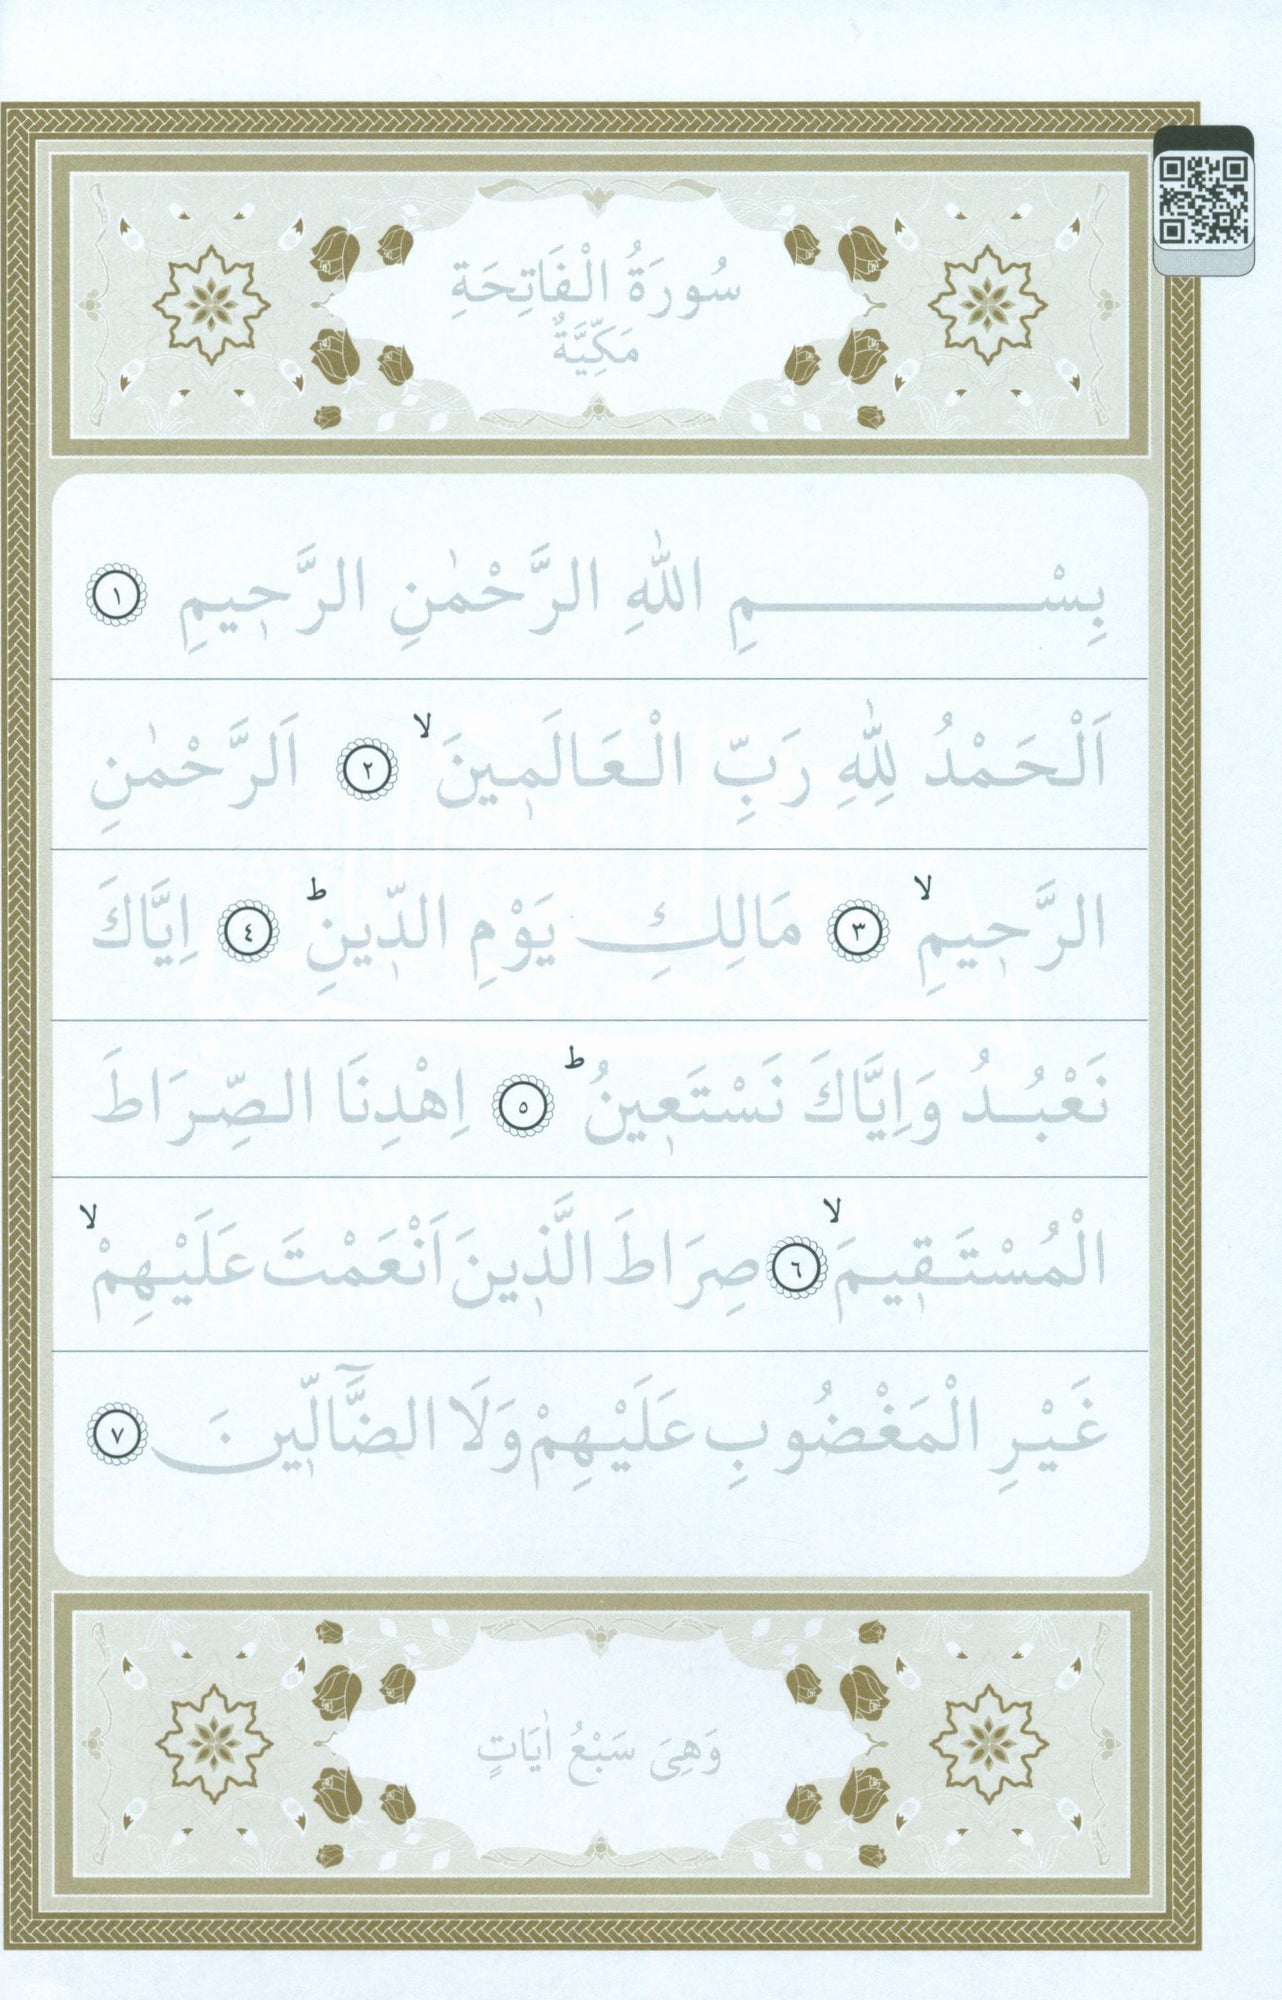 سُورَةُ الْفَاتِحَةِ
مَكِّيَّةٌ
بِسْمِ اللّٰهِ الرَّحْمٰنِ الرَّحٖيمِ ١
اَلْحَمْدُ لِلّٰهِ رَبِّ الْعَالَمٖينَۙ ٢ اَلرَّحْمٰنِ
الرَّحٖيمِۙ ٣ مَالِكِ يَوْمِ الدّٖينِؕ ٤ اِيَّاكَ
نَعْبُدُ وَاِيَّاكَ نَسْتَعٖينُؕ ٥ اِهْدِنَا الصِّرَاطَ
الْمُسْتَقٖيمَۙ ٦ صِرَاطَ الَّذٖينَ اَنْعَمْتَ عَلَيْهِمْۙ
غَيْرِ الْمَغْضُوبِ عَلَيْهِمْ وَلَا الضَّٓالّٖينَ ٧
وَهِىَ سَبْعُ اٰيَاتٍ